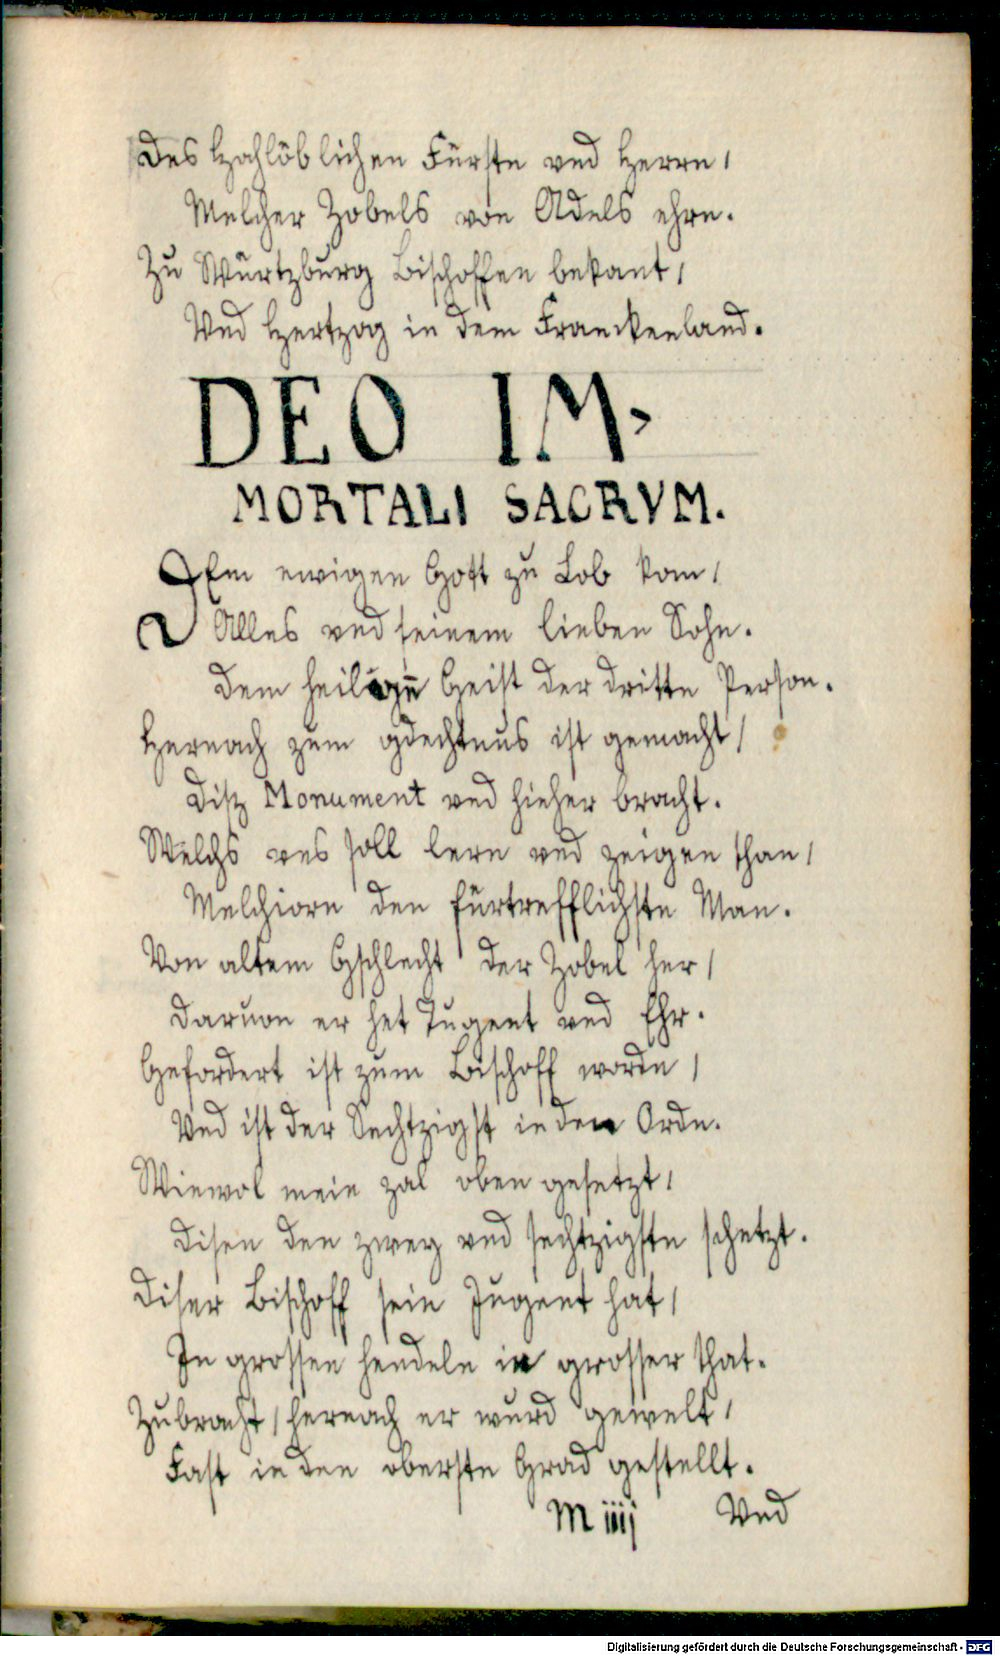 Des Hochlöblichen Fürstn vnd Herrn /
Melcher Zobels von Adels ehrn.
Zu Würtzburg Bischoffen bekant /
Vnd Hertzog in dem Franckenland.
DEO IM-
MORTALI SACRVM.
DEm ewigen Gott zu Lob kom /
Alles vnd seinem lieben Sohn.
Dem heilign̄ Geist der dritte Person.
Hernach zum gdechtnus ist gemacht /
Disz Monument vnd hieher bracht.
Welchs vns soll lern vnd zeigen than /
Melchiorn den fürtrefflichstn Man.
Von altem Gschlecht der Zobel her /
Daruon er het Tugent vnd Ehr.
Gefordert ist zum Bischoff wordn /
Vnd ist der Sechtzigst in den Ordn.
Wiewol mein zal oben gesetzt /
Disen den zwey vnd sechtzigstn schetzt.
Diser Bischoff sein Jugent hat /
In grossen hendeln in grosser that.
Zubracht / hernach er wurd gewelt /
Fast in den oberstn Grad gestellt.
M iiij Vnd
Digitalisierung gefördert durch die Deutsche Forschungsgemeinschaft - DFG